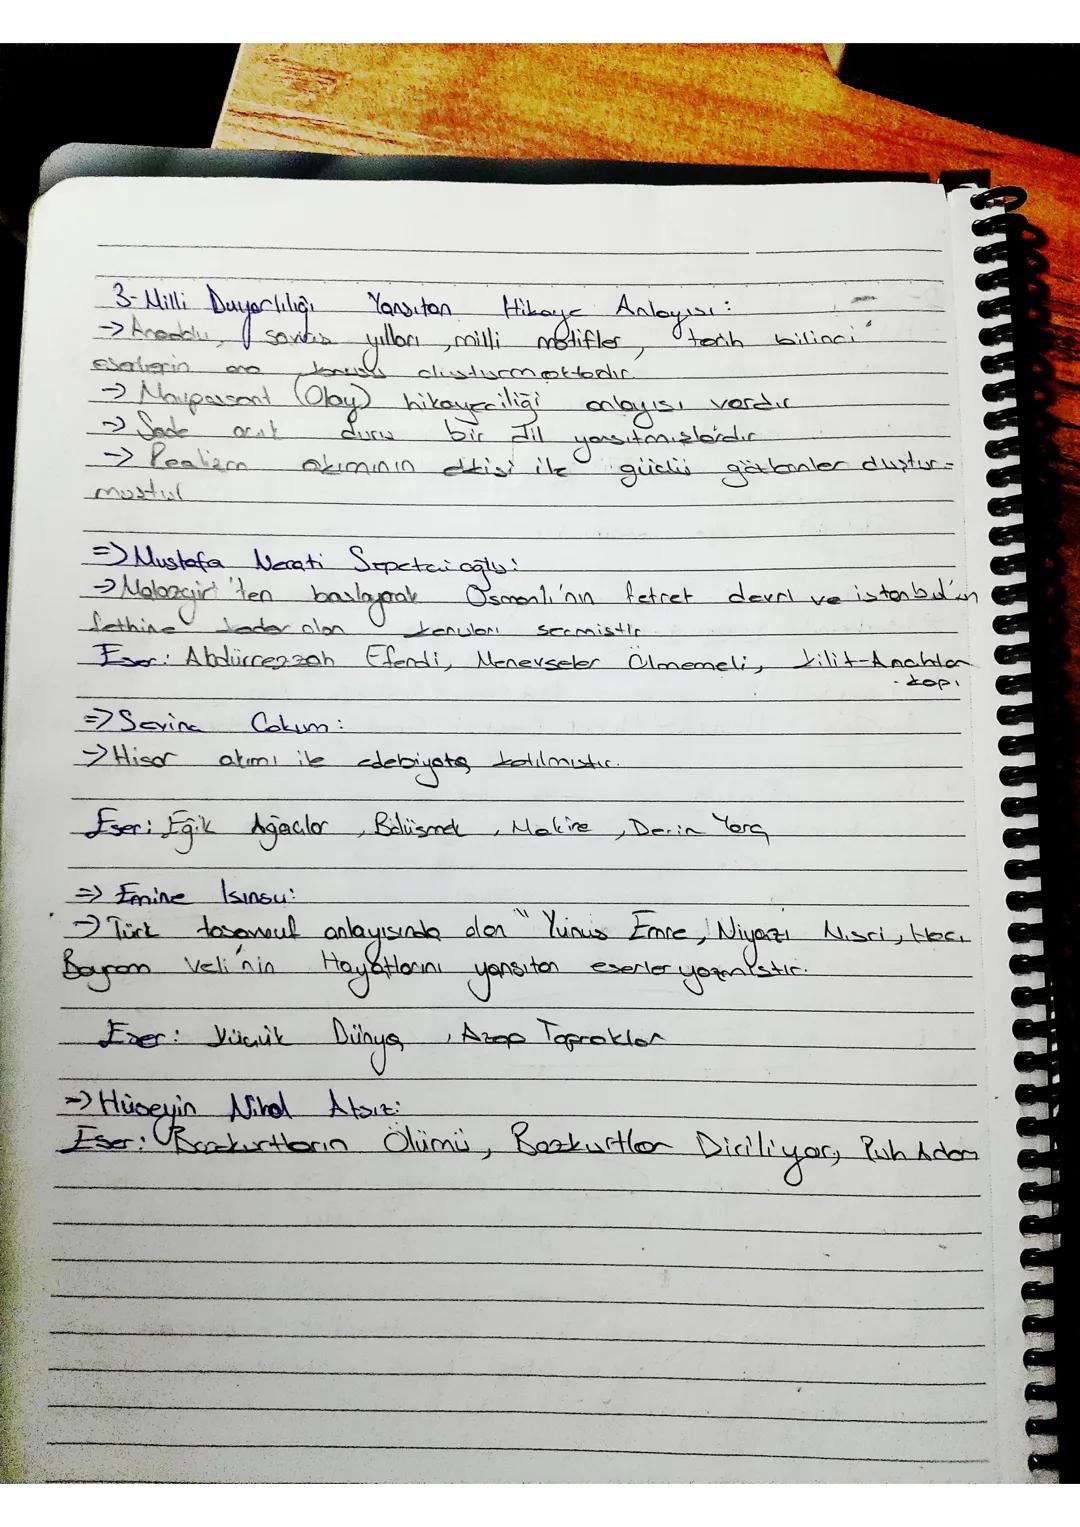 3- Milli Duyarlılığı Yansıtan Hikaye Anlayışı:
→ Anadolu, savaş yılları, milli motifler, tarih bilinci
eserlerin ana konusu oluşturmaktadır.
→ Maupassant (Olay) hikayeciliği anlayışı vardır
→ Sade açık duru bir dil yansıtmışlardır.
→ Realizm akımının etkisi ile güçlü gözlemler oluştur-
muştur
=> Mustafa Necati Sepetçioğlu:
→ Malazgirt'ten başlayarak Osmanlı'nın fetret devri ve istanbul'un
fethine kadar olan konuları seçmiştir.
Eser: Abdürrezzah Efendi, Menevşeler Ölmemeli, Kilit-Anahtar
- kapı
=> Sevinç Çokum:
→ Hisar akımı ile edebiyata katılmıştır.
Eser: Eğik Ağaçlar, Bölüşmek, Makine, Derin Yara
=> Emine Işınsu:
→ Türk tasavvuf anlayışında olan " Yunus Emre, Niyazi Mısri, Hacı
Bayram Veli'nin Hayatlarını yansıtan eserler yazmıştır.
Eser: Küçük Dünya, Azap Toprakları
→ Hüseyin Nihal Atsız:
Eser: Bozkurtların Ölümü, Bozkurtlar Diriliyor, Ruh Adam